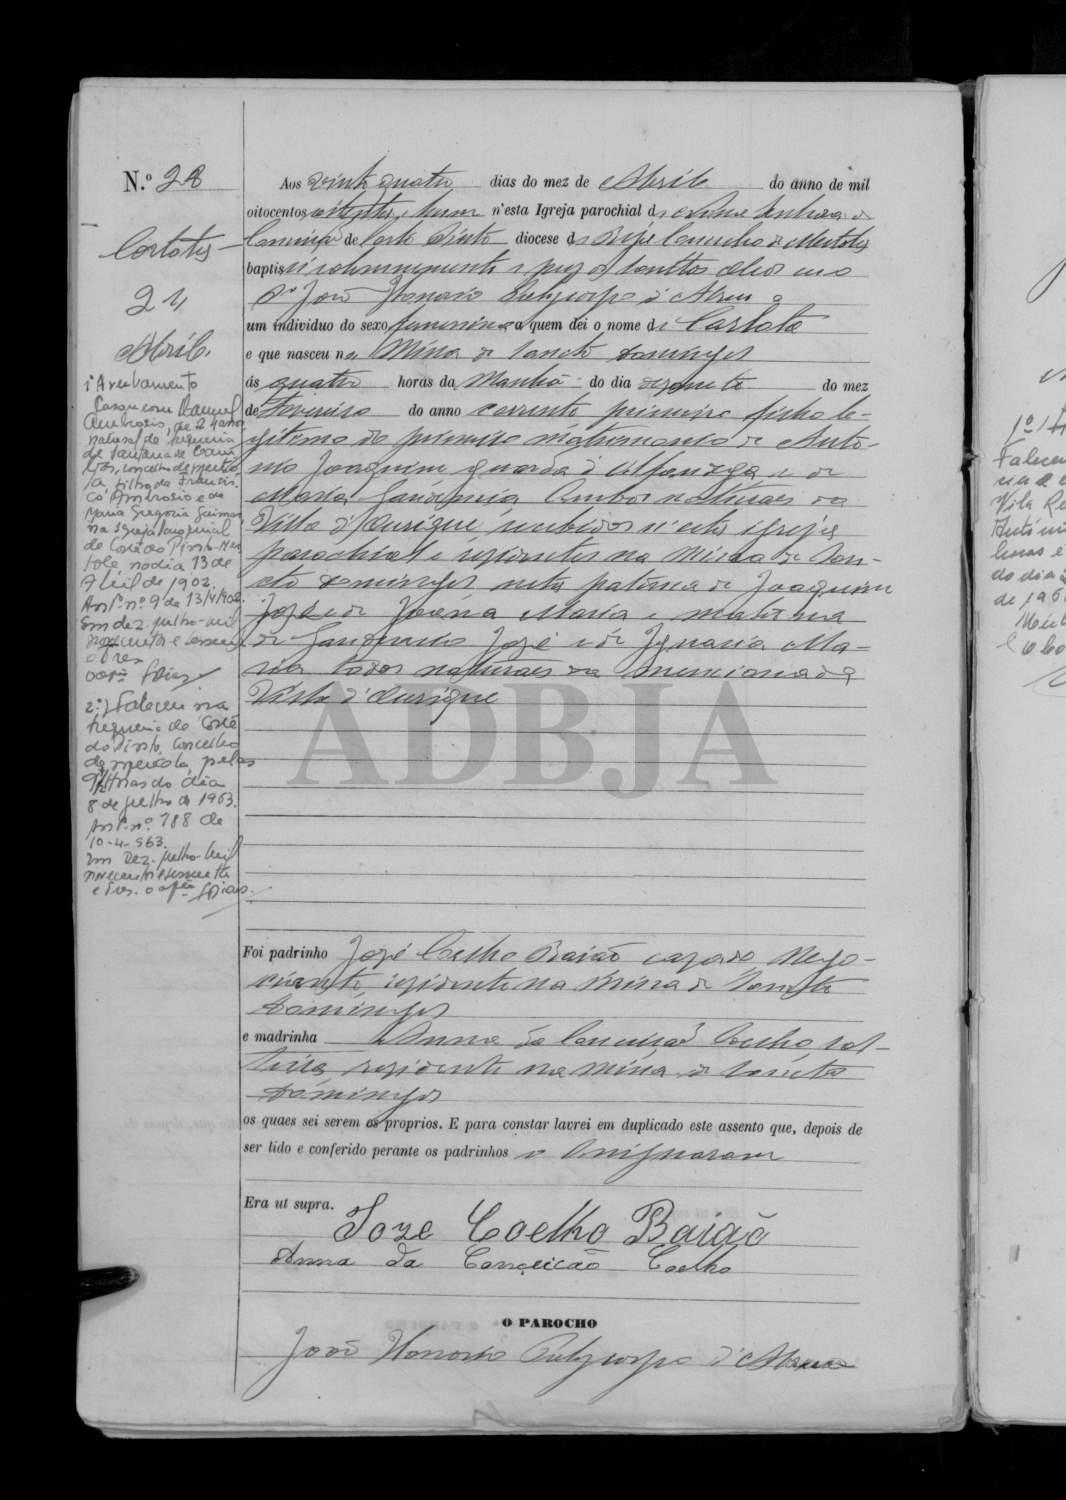 N.º 28
Carlota
24
Abril.
1º Averbamento
Casou com Manuel
Ambrosio, de 24 anos
natural da freguesia
de Santana de Cam
bas, concelho de Mertola
filho de Francis
co Ambrosio e de
Maria Gregoria Guimar
na Igreja Paroquial
de Corte do Pinto
no dia 13 de
Abril de 1902.
nº 9 de 13/4/902.
Em dez-julho-mil
novecentos e sessenta
e tres
Dias
2º Faleceu na
freguesia de Corte
do Pinto, Concelho
de Mertola, pelas
horas do dia
8 de julho de 1963.
nº 188 de
10-4-963.
Em Dez-julho-mil
novecentos e sessenta
e tres. O Dias.
Aos vinte quatro dias do mez de Abril do anno de mil
oitocentos oitenta e hum n'esta Igreja parochial de Nossa Senhora da
Conceição de Corte Pinto diocese de Beja Concelho de Mertola
baptisei solemnemente e puz os Santos Oleos eu o
Pe João Honorio d'Abreu a
um individuo do sexo feminino a quem dei o nome de Carlota
e que nasceu na Mina de Sancto Domingos
ás quatro horas da Manhã do dia dezanete do mez
de Fevereiro do anno corrente primeira filha le-
gitima do primeiro matrimonio de Anto-
nio Joaquim guarda d'Alfandega e de
Maria Gaudencia Ambos naturaes da
Villa d'Ourique recebidos n'esta igreja
parochial e residentes na Mina de San-
cto Domingos neta paterna de Joaquim
José e de Joanna Maria e materna
de Gaudencio José e de Ignacia Ma-
ria todos naturaes da mencionada
Villa d'Ourique
ADBJA
Foi padrinho José Coelho Baião cazado Nego-
ciante rezidente na Mina de Sancto
Domingos
e madrinha Anna da Conceição Coelho sol-
teira rezidente na Mina de Sancto
Domingos
os quaes sei serem os proprios. E para constar lavrei em duplicado este assento que, depois de
ser lido e conferido perante os padrinhos o assignaram
Era ut supra.
Joze Coelho Baião
Anna da Conçeicão Coelho
O PAROCHO
João Honorio d'Abreu
1º
Falece
Vila Re
do dia
de 196